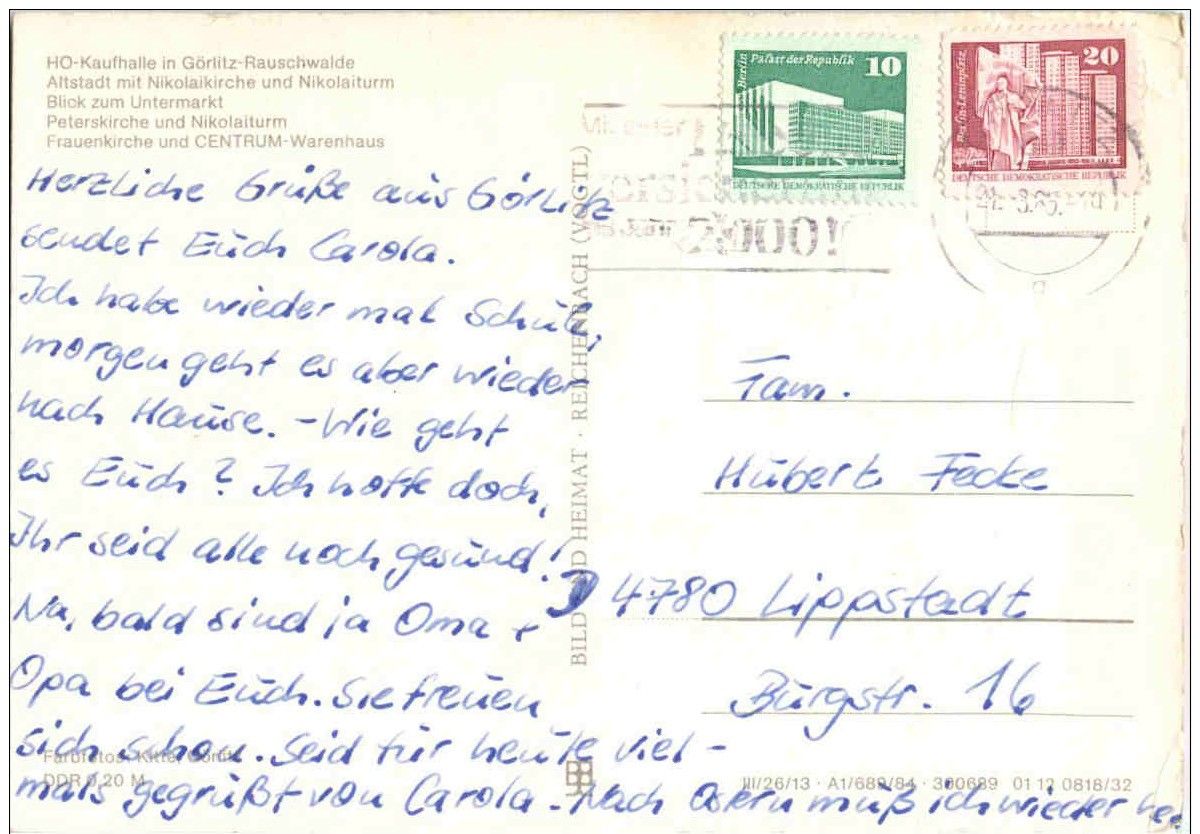 HO-Kaufhalle in Görlitz-Rauschwalde
Altstadt mit Nikolaikirche und Nikolaiturm
Blick zum Untermarkt
Peterskirche und Nikolaiturm
Frauenkirche und CENTRUM-Warenhaus
Herzliche Grüße aus Görlitz
sendet Euch Carola.
Ich habe wieder mal Schule,
morgen geht es aber wieder
nach Hause. - Wie geht
es Euch? Ich hoffe doch,
Ihr seid alle noch gesund!
Na, bald sind ja Oma +
Opa bei Euch. Sie freuen
sich schon. Seid für heute viel-
mals gegrüßt von Carola. - Nach Ostern muß ich wieder
Farbfotos: Kittel, Görlitz
DDR 0,20 M
BILD UND HEIMAT · REICHENBACH (VOGTL)
Berlin Palast der Republik
10
DEUTSCHE DEMOKRATISCHE REPUBLIK
Berlin, Leninplatz
20
DEUTSCHE DEMOKRATISCHE REPUBLIK
2000!
Fam.
Hubert Fecke
D 4780 Lippstadt
Burgstr. 16
III/26/13 · A1/689/84 · 300689 01 12 0818/32